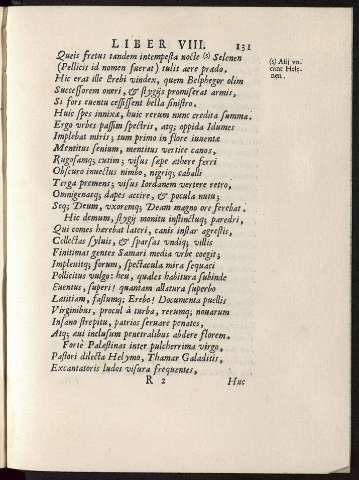 LIBER VIII. 131
Queis fretus tandem intempesta nocte (s) Selenen
(s) Alij vocant Helenen.
(Pellicis id nomen fuerat) tulit aere prado.
Hic erat ille Erebi vindex, quem Belphegor olim
Successorem oneri, & stygijs promiserat armis,
Si fors euentu cessissent bella sinistro.
Huic spes innixæ, huic rerum nunc credita summa.
Ergo vrbes passim spectris, atq; oppida Idumes
Implebat miris; tum primo in flore iuuentæ
Mentitus senium, mentitus vertice canos,
Rugosamq; cutim; visus sæpe æthere ferri
Obscuro inuectus nimbo, nigriq; caballi
Terga premens; visus Iordanem vertere retro,
Omnigenasq; dapes accire, & pocula nutu;
Seq; Deum, vxoremq; Deam magno ore ferebat.
Hic demum, stygij monitu instinctuq; paredri,
Qui comes hærebat lateri, canis instar agrestis,
Collectas syluis, & sparsas vndiq; villis
Finitimas gentes Samari media vrbe coegit;
Impleuitq; forum, spectacula mira sequaci
Pollicitus vulgo: heu, quales habitura subinde
Euentus, superi! quantam allatura superbo
Lætitiam, fastumq; Erebo! Documenta puellis
Virginibus, procul à turba, rerumq; nouarum
Insano strepitu, patrios seruare penates,
Atq; æui inclusum penetralibus abdere florem.
Fortè Palæstinas inter pulcherrima virgo,
Pastori dilecta Helymo, Thamar Galaditis,
Excantatoris ludos visura frequentes,
R 2 Huc